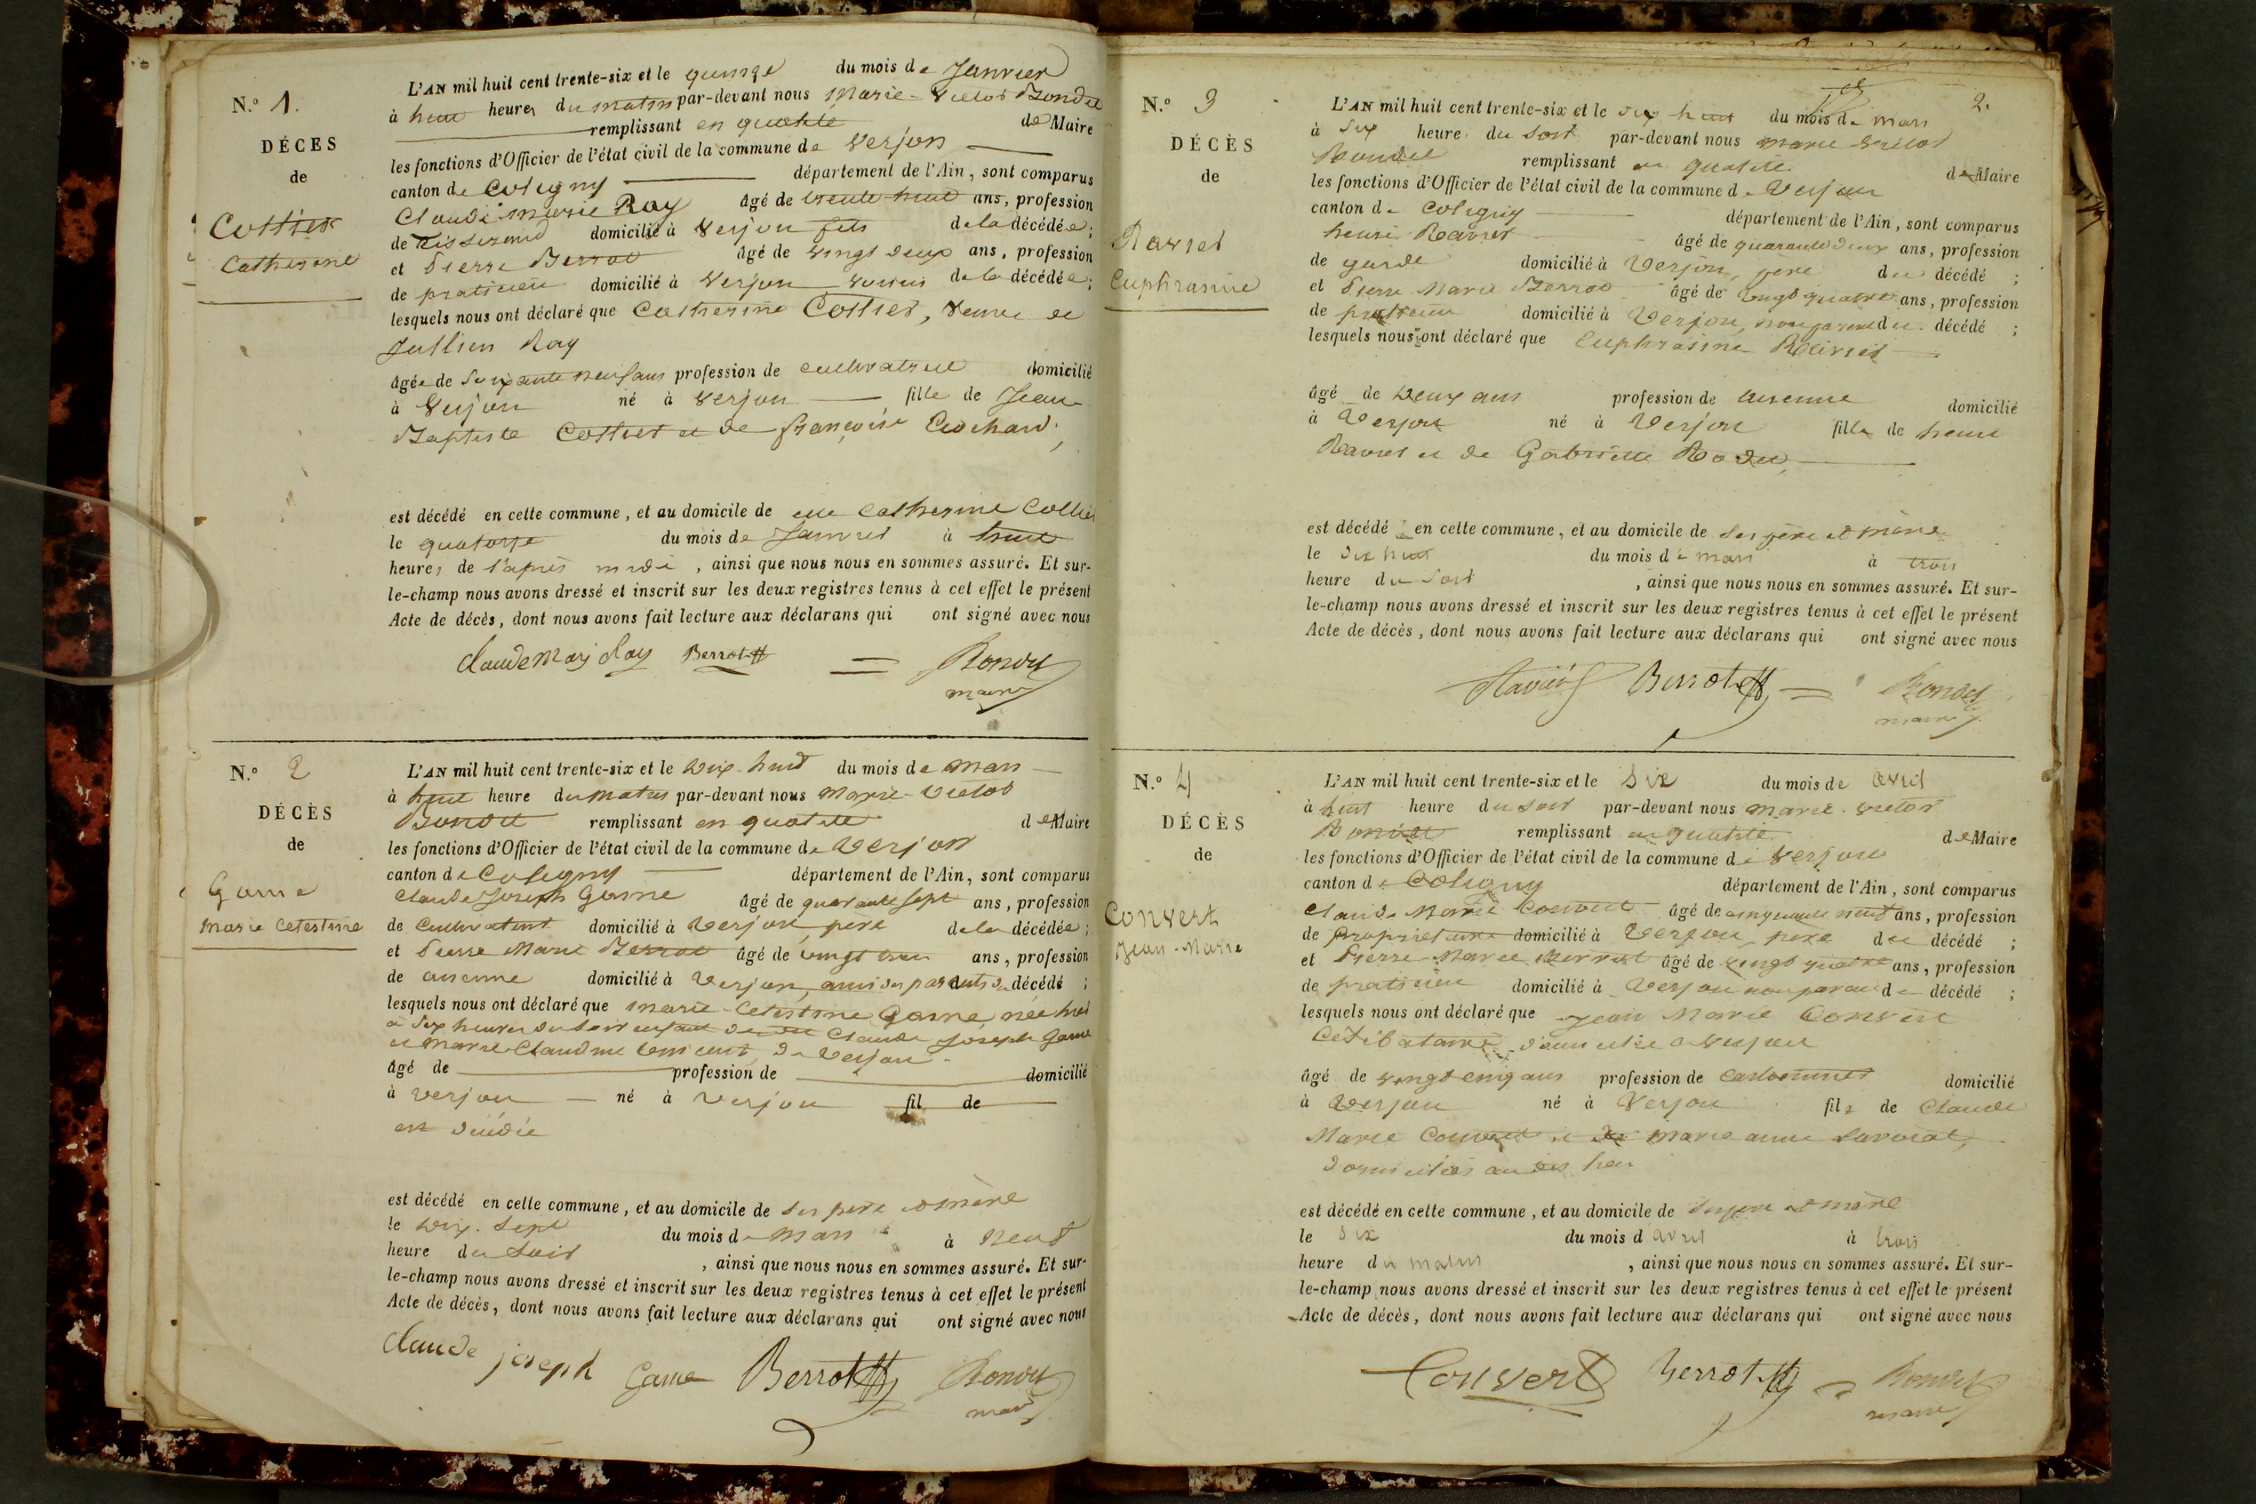 N.° 1.
DÉCES
de
Collier
Catherine
L'AN mil huit cent trente-six et le quinze du mois de Janvier
à huit heures du matin par-devant nous Marie-Victor Bondet
remplissant en qualité de Maire
les fonctions d'Officier de l'état civil de la commune de Verjon
canton de Coligny département de l'Ain, sont comparus
Claude Marie Ray âgé de trente huit ans, profession
de Tisserand domicilié à Verjon fils de la décédée;
et Pierre Berrod âgé de vingt deux ans, profession
de praticien domicilié à Verjon voisin de la décédée;
lesquels nous ont déclaré que Catherine Collier, veuve de
Jullien Ray
âgée de soixante neuf ans profession de cultivatrice domicilié
à Verjon né à Verjon fille de Jean
Baptiste Collier et de françoise
est décédé en cette commune, et au domicile de elle Catherine Collier
le quatorze du mois de Janvier à huit
heures de l'après midi, ainsi que nous nous en sommes assuré. Et sur-
le-champ nous avons dressé et inscrit sur les deux registres tenus à cet effet le présent
Acte de décès, dont nous avons fait lecture aux déclarans qui ont signé avec nous
Claude Mary Ray Berrot Bondet
maire
N.° 2
DÉCÈS
de
Game
Marie Celestine
L'AN mil huit cent trente-six et le dix-huit du mois de mars
à huit heure du matin par-devant nous Marie-Victor
Bondet remplissant en qualité de Maire
les fonctions d'Officier de l'état civil de la commune de Verjon
canton de Coligny département de l'Ain, sont comparus
Claude Joseph Game âgé de quarante sept ans, profession
de Cultivateur domicilié à Verjon, père de la décédée;
et Pierre Marie Berrod âgé de vingt trois ans, profession
de aucune domicilié à Verjon, ami des parents du décédé;
lesquels nous ont déclaré que Marie-Celestine Game, née hier
à six heures du soir enfant de Claude Joseph Game
et Marie Claudine de Verjon
âgé de profession de domicilié
à Verjon né à Verjon fil de
est décédée
est décédé en cette commune, et au domicile de ses père et mère
le dix-sept du mois de mars à neuf
heure du soir, ainsi que nous nous en sommes assuré. Et sur-
le-champ nous avons dressé et inscrit sur les deux registres tenus à cet effet le présent
Acte de décès, dont nous avons fait lecture aux déclarans qui ont signé avec nous
Claude joseph Game Berrot Bondet
maire
2.
N.° 3
DÉCÈS
de
Ravier
Euphrasine
L'AN mil huit cent trente-six et le dix huit du mois de mars
à six heure du soir par-devant nous Marie Victor
Bondet remplissant en qualité de Maire
les fonctions d'Officier de l'état civil de la commune de Verjon
canton de Coligny département de l'Ain, sont comparus
henri Ravier âgé de quarante deux ans, profession
de garde domicilié à Verjon, père du décédé;
et Pierre Marie Berrod âgé de vingt quatre ans, profession
de praticien domicilié à Verjon, non parent du décédé;
lesquels nous ont déclaré que Euphrasine Ravier
âgé de deux ans profession de aucune domicilié
à Verjon né à Verjon fille de henri
Ravier et de Gabrielle
est décédé en cette commune, et au domicile de ses père et mère
le dix huit du mois de mars à trois
heure du soir, ainsi que nous nous en sommes assuré. Et sur-
le-champ nous avons dressé et inscrit sur les deux registres tenus à cet effet le présent
Acte de décès, dont nous avons fait lecture aux déclarans qui ont signé avec nous
Ravier Berrot Bondet
maire
N.° 4
DÉCÈS
de
Convert
Jean-Marie
L'AN mil huit cent trente-six et le six du mois de avril
à huit heure du soir par-devant nous Marie-Victor
Bondet remplissant en qualité de Maire
les fonctions d'Officier de l'état civil de la commune de Verjon
canton de Coligny département de l'Ain, sont comparus
Claude Marie Convert âgé de cinquante neuf ans, profession
de propriétaire domicilié à Verjon père du décédé;
et Pierre Marie Berrod âgé de vingt quatre ans, profession
de praticien domicilié à Verjon non parent de décédé;
lesquels nous ont déclaré que Jean Marie Convert
Célibataire domicilié à Verjon
âgé de vingt cinq ans profession de domicilié
à Verjon né à Verjon fils de Claude
Marie Convert et de Marie anne
domiciliés au dit lieu
est décédé en cette commune, et au domicile de ses père et mère
le six du mois d avril à trois
heure du matin, ainsi que nous nous en sommes assuré. Et sur-
le-champ nous avons dressé et inscrit sur les deux registres tenus à cet effet le présent
Acte de décès, dont nous avons fait lecture aux déclarans qui ont signé avec nous
Convert Berrot Bondet
maire